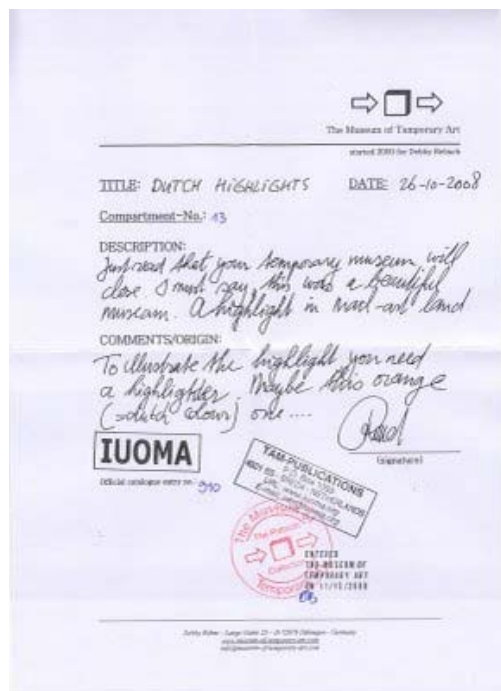 The Museum of Temporary Art
TITLE: DUTCH HIGHLIGHTS DATE: 26-10-2008
Compartment-No.: 13
DESCRIPTION:
Just read that your temporary museum will
close I must say, this was a beautiful
museum. A highlight in mail-art land
COMMENTS/ORIGIN:
To illustrate the highlight you need
a highlighter. Maybe this orange
(=dutch colour) one ....
(signature)
IUOMA
Official catalogue entry no. 910
TAM-PUBLICATIONS
P.O. Box
NETHERLANDS
The Museum of
Temporary
ENTERED
THE MUSEUM OF
TEMPORARY ART